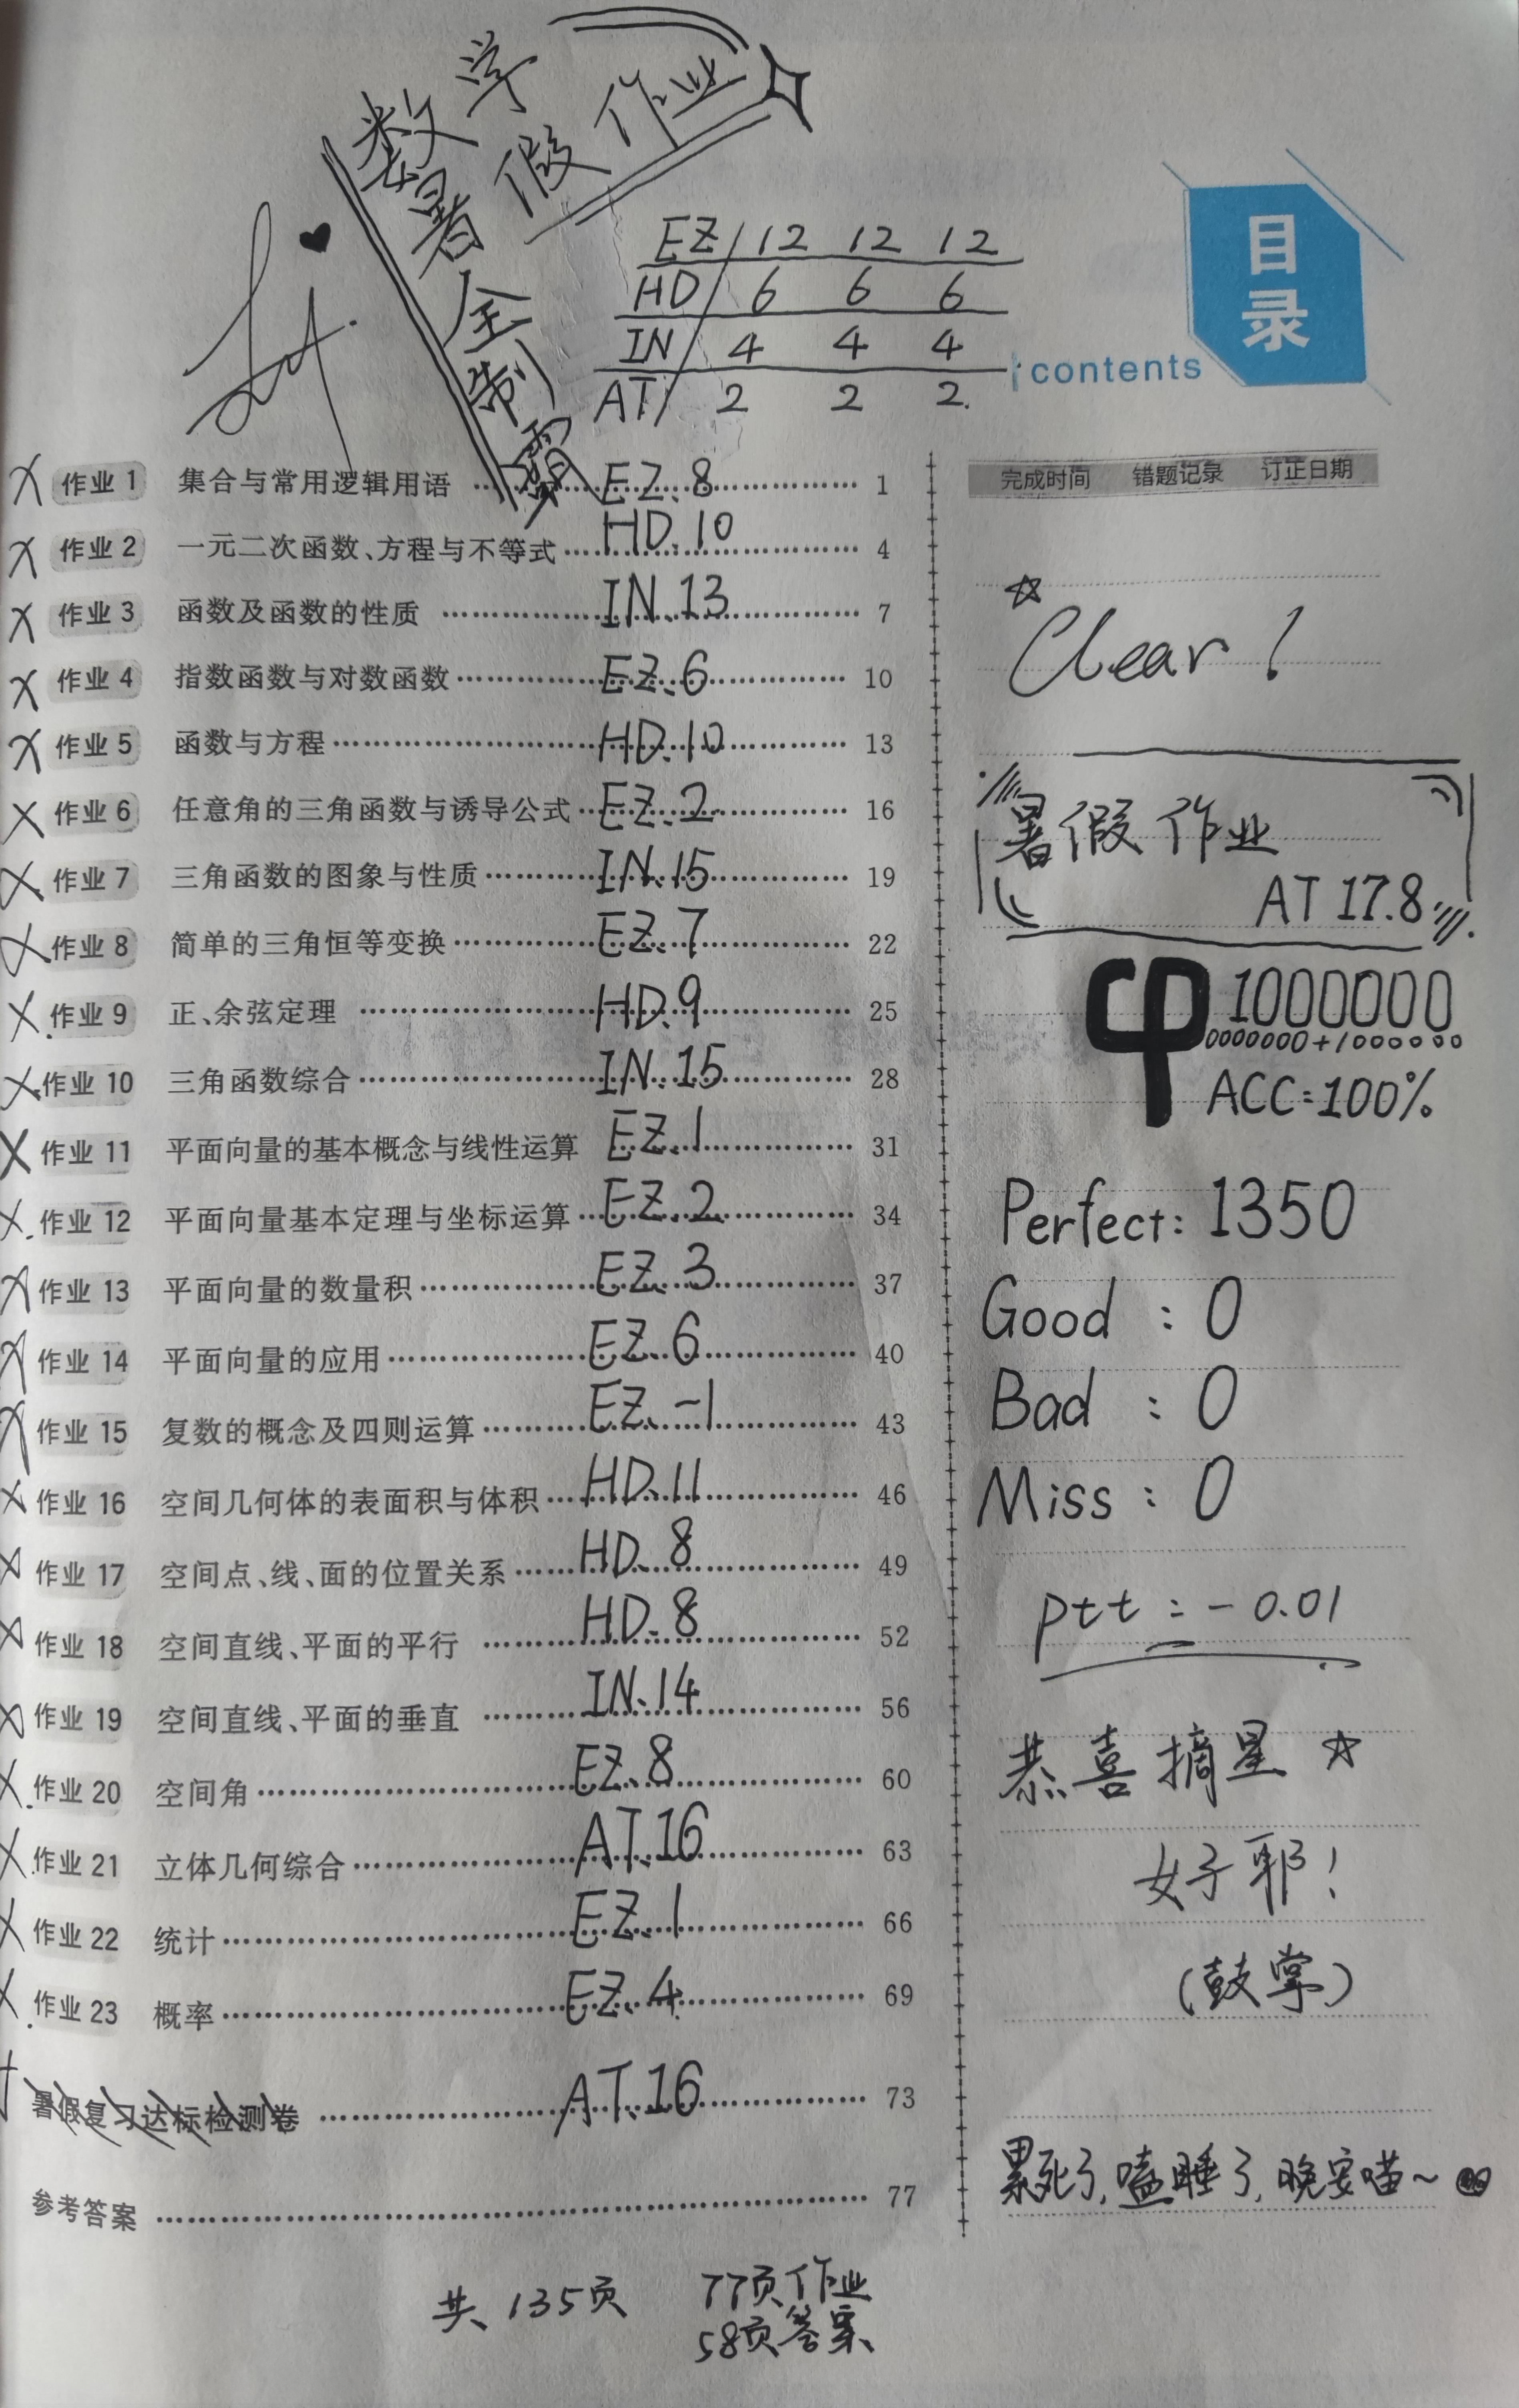 数学
暑假作业
全制霸
EZ/12 12 12
HD/6 6 6
IN/4 4 4
AT/2 2 2.
目录
contents
完成时间 错题记录 订正日期
作业 1 集合与常用逻辑用语 EZ.8 1
作业 2 一元二次函数、方程与不等式 HD.10 4
作业 3 函数及函数的性质 IN.13 7
作业 4 指数函数与对数函数 EZ.6 10
作业 5 函数与方程 HD.10 13
作业 6 任意角的三角函数与诱导公式 EZ.2 16
作业 7 三角函数的图象与性质 IN.15 19
作业 8 简单的三角恒等变换 EZ.7 22
作业 9 正、余弦定理 HD.9 25
作业 10 三角函数综合 IN.15 28
作业 11 平面向量的基本概念与线性运算 EZ.1 31
作业 12 平面向量基本定理与坐标运算 EZ.2 34
作业 13 平面向量的数量积 EZ.3 37
作业 14 平面向量的应用 EZ.6 40
作业 15 复数的概念及四则运算 EZ.-1 43
作业 16 空间几何体的表面积与体积 HD.11 46
作业 17 空间点、线、面的位置关系 HD.8 49
作业 18 空间直线、平面的平行 HD.8 52
作业 19 空间直线、平面的垂直 IN.14 56
作业 20 空间角 EZ.8 60
作业 21 立体几何综合 AT.16 63
作业 22 统计 EZ.1 66
作业 23 概率 EZ.4 69
暑假复习达标检测卷 AT.16 73
参考答案 77
共135页
77页作业
58页答案
☆
Clear!
暑假作业
AT 17.8
φ 1000000
0000000+1000000
ACC=100%
Perfect: 1350
Good : 0
Bad : 0
Miss : 0
ptt = -0.01
恭喜摘星☆
好耶!
(鼓掌)
累死了,嗑睡了,晚安喵~